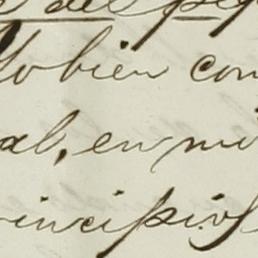 des
Tobien con
al, en mi
rincipios